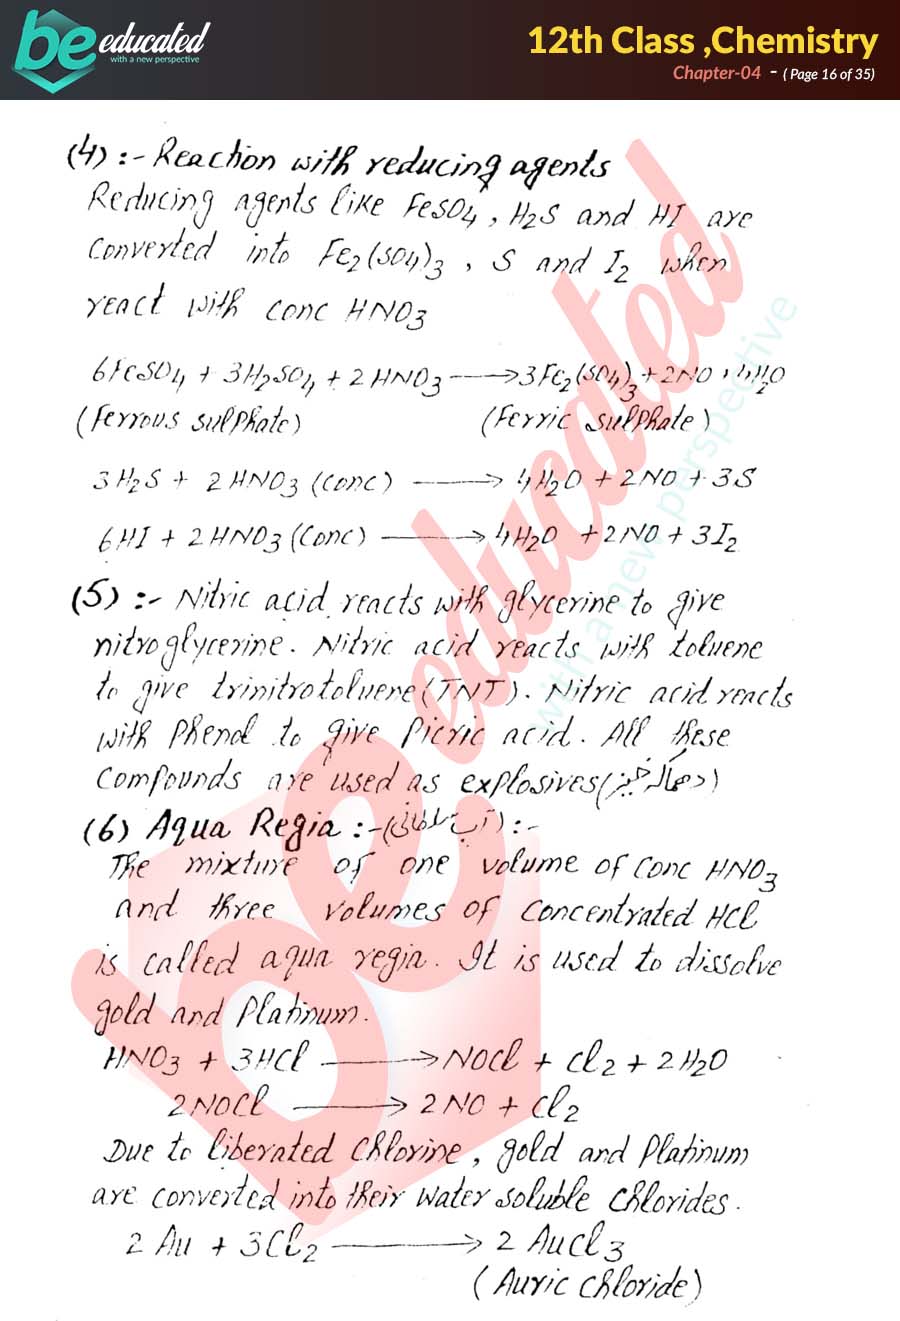 be educated
with a new perspective
12th Class ,Chemistry
Chapter-04 - ( Page 16 of 35)
(4) :- Reaction with reducing agents
Reducing agents like FeSO4, H2S and HI are
converted into Fe2(SO4)3, S and I2 when
react with conc HNO3
6FeSO4 + 3H2SO4 + 2HNO3 → 3Fe2(SO4)3 + 2NO + 4H2O
(Ferrous sulphate) (Ferric sulphate)
3H2S + 2HNO3 (conc) → 4H2O + 2NO + 3S
6HI + 2HNO3 (conc) → 4H2O + 2NO + 3I2
(5) :- Nitric acid reacts with glycerine to give
nitroglycerine. Nitric acid reacts with toluene
to give trinitrotoluene (TNT). Nitric acid reacts
with Phenol to give Picric acid. All these
compounds are used as explosives (دھماکہ خیز)
(6) Aqua Regia :- ( ) :-
The mixture of one volume of conc HNO3
and three volumes of concentrated HCl
is called aqua regia. It is used to dissolve
gold and Platinum.
HNO3 + 3HCl → NOCl + Cl2 + 2H2O
2NOCl → 2NO + Cl2
Due to liberated chlorine, gold and Platinum
are converted into their water soluble chlorides.
2Au + 3Cl2 → 2AuCl3
(Auric chloride)
be educated
with a new perspective